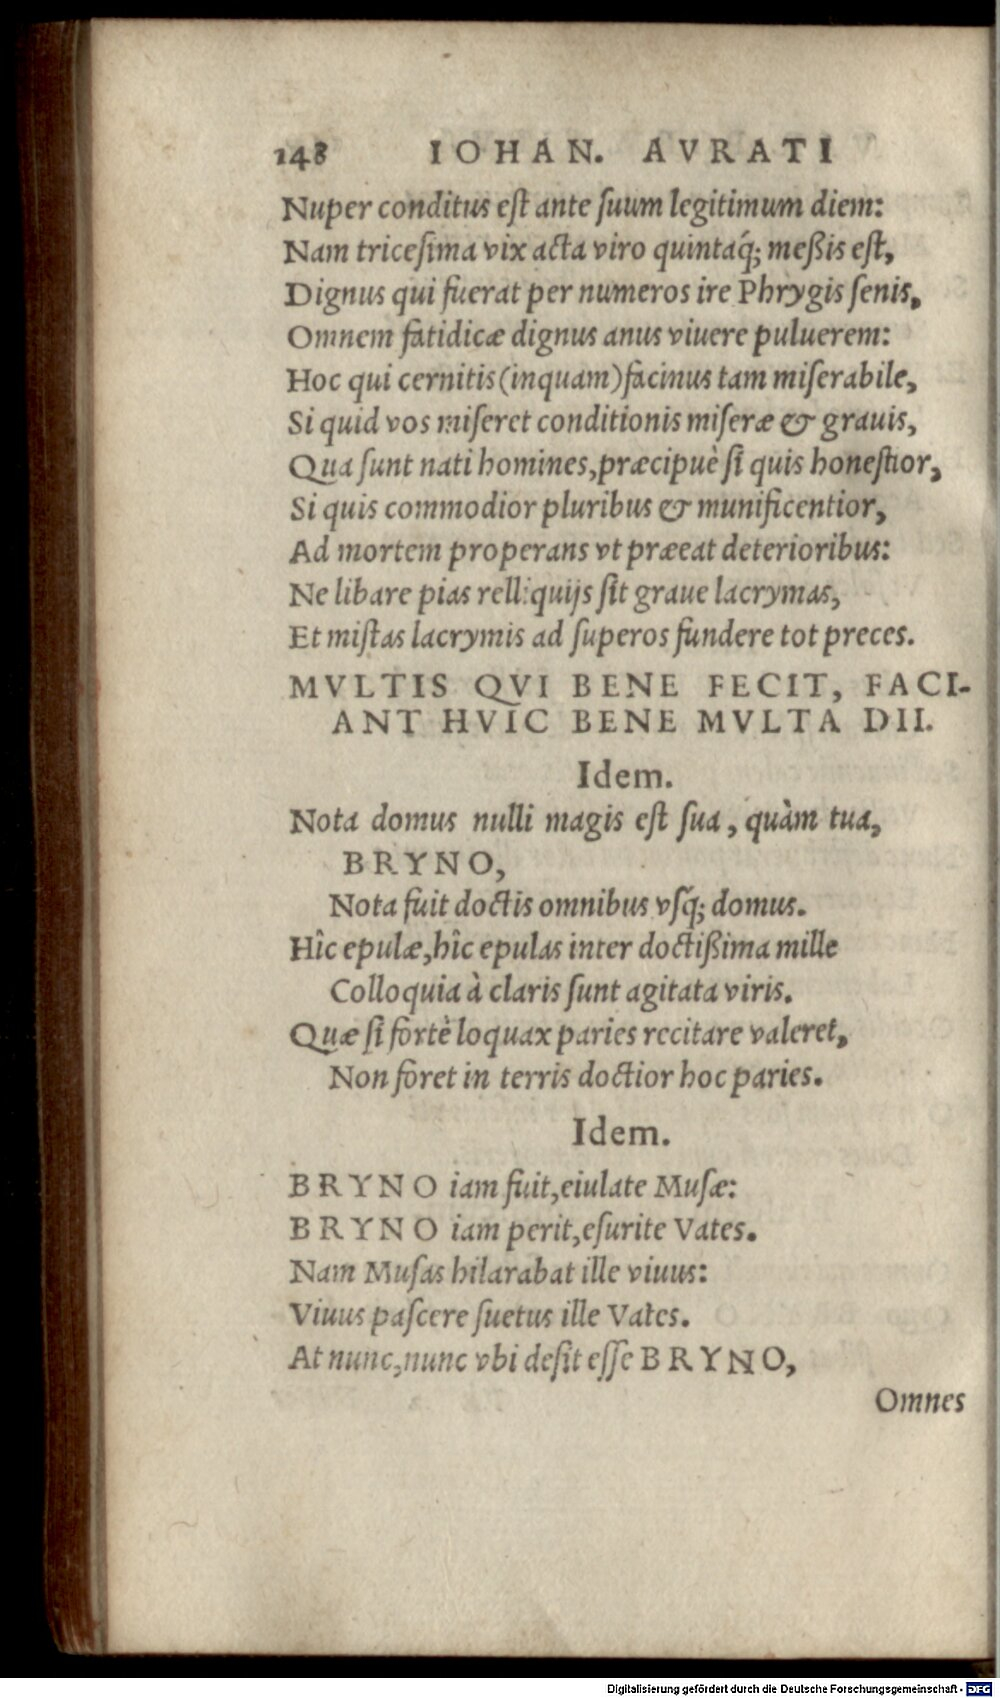 148 IOHAN. AVRATI
Nuper conditus est ante suum legitimum diem:
Nam tricesima vix acta viro quintaq́; meßis est,
Dignus qui fuerat per numeros ire Phrygis senis,
Omnem fatidicæ dignus anus viuere puluerem:
Hoc qui cernitis (inquam) facinus tam miserabile,
Si quid vos miseret conditionis miseræ & grauis,
Qua sunt nati homines, præcipuè si quis honestior,
Si quis commodior pluribus & munificentior,
Ad mortem properans vt præeat deterioribus:
Ne libare pias relliquijs sit graue lacrymas,
Et mistas lacrymis ad superos fundere tot preces.
MVLTIS QVI BENE FECIT, FACI-
ANT HVIC BENE MVLTA DII.
Idem.
Nota domus nulli magis est sua, quàm tua,
BRYNO,
Nota fuit doctis omnibus vsq́; domus.
Hîc epulæ, hîc epulas inter doctißima mille
Colloquia à claris sunt agitata viris.
Quæ si fortè loquax paries recitare valeret,
Non foret in terris doctior hoc paries.
Idem.
BRYNO iam fuit, eiulate Musæ:
BRYNO iam perit, esurite Vates.
Nam Musas hilarabat ille viuus:
Viuus pascere suetus ille Vates.
At nunc, nunc vbi desit esse BRYNO,
Omnes
Digitalisierung gefördert durch die Deutsche Forschungsgemeinschaft - DFG